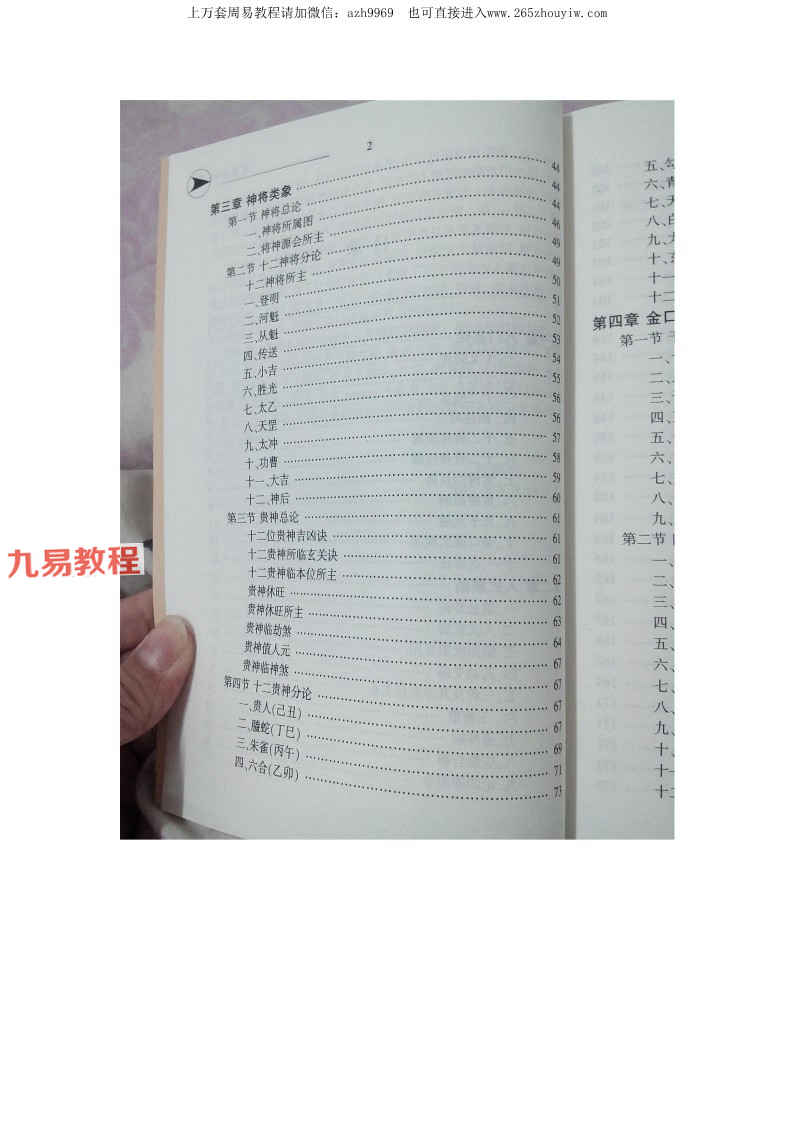 上万套周易教程请加微信：azh9969 也可直接进入www.265zhouyiw.com
2
第三章 神将类象 44
第一节 神将总论 44
一、神将所属图 44
二、将神源会所主 46
第二节 十二神将分论 49
十二神将所主 49
一、登明 50
二、河魁 51
三、从魁 52
四、传送 53
五、小吉 54
六、胜光 55
七、太乙 56
八、天罡 56
九、太冲 57
十、功曹 58
十一、大吉 59
十二、神后 60
第三节 贵神总论 61
十二位贵神吉凶诀 61
十二贵神所临玄关诀 61
十二贵神临本位所主 62
贵神休旺 62
贵神休旺所主 63
贵神临劫煞 64
贵神值人元 67
贵神临神煞 67
第四节 十二贵神分论 67
一、贵人(己丑) 67
二、螣蛇(丁巳) 69
三、朱雀(丙午) 71
四、六合(乙卯) 73
九易教程
五、
六、
七、
八、
九、
十、
十一
十二
第四章 金口
第一节
一、
二、
三、
四、
五、
六、
七、
八、
九、
第二节
一、
二、
三、
四、
五、
六、
七、
八、
九、
十、
十一
十二